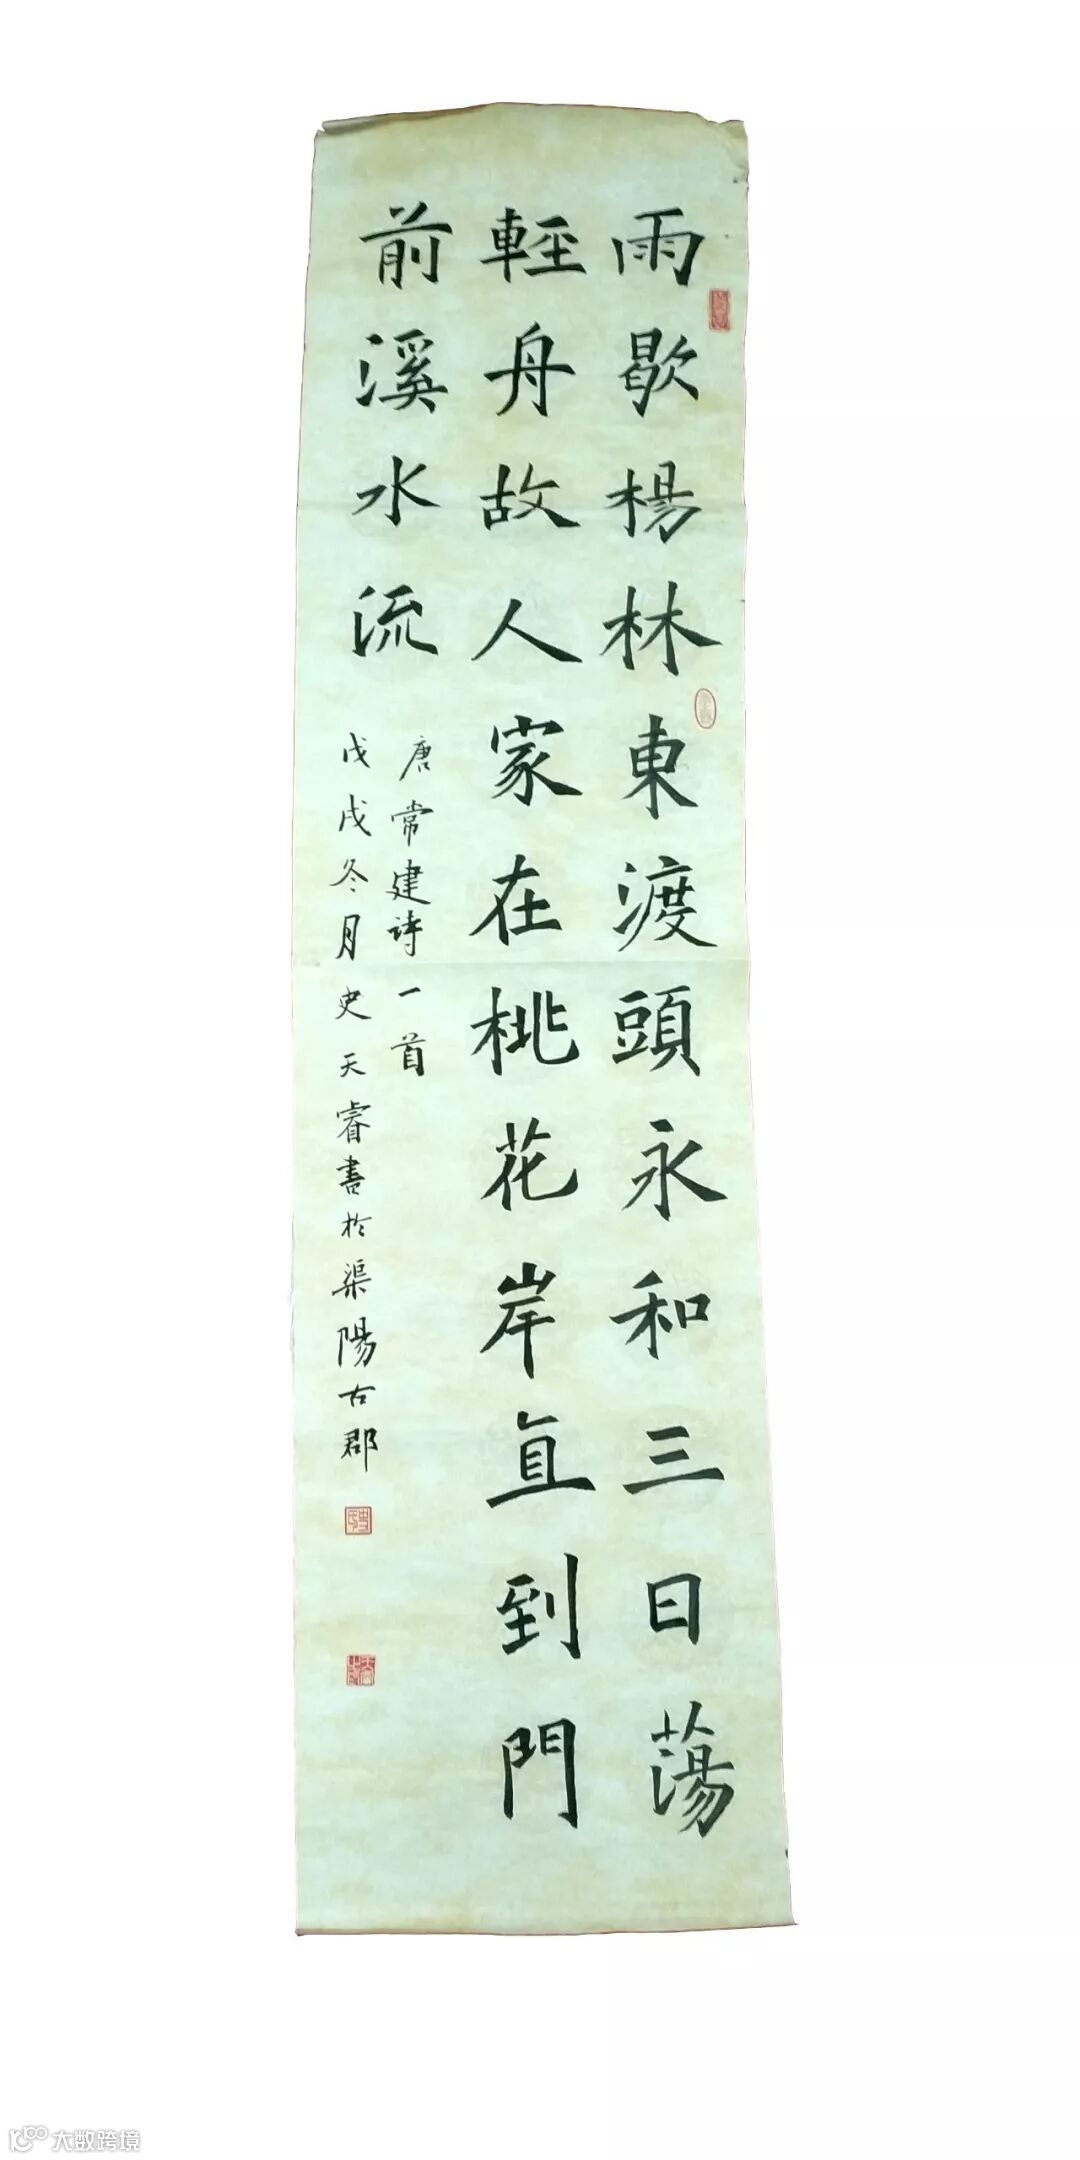 雨歇楊林東渡頭永和三日蕩
輕舟故人家在桃花岸直到門
前溪水流
唐常建詩一首
戊戌冬月史天睿書於渠陽古郡
大数跨境